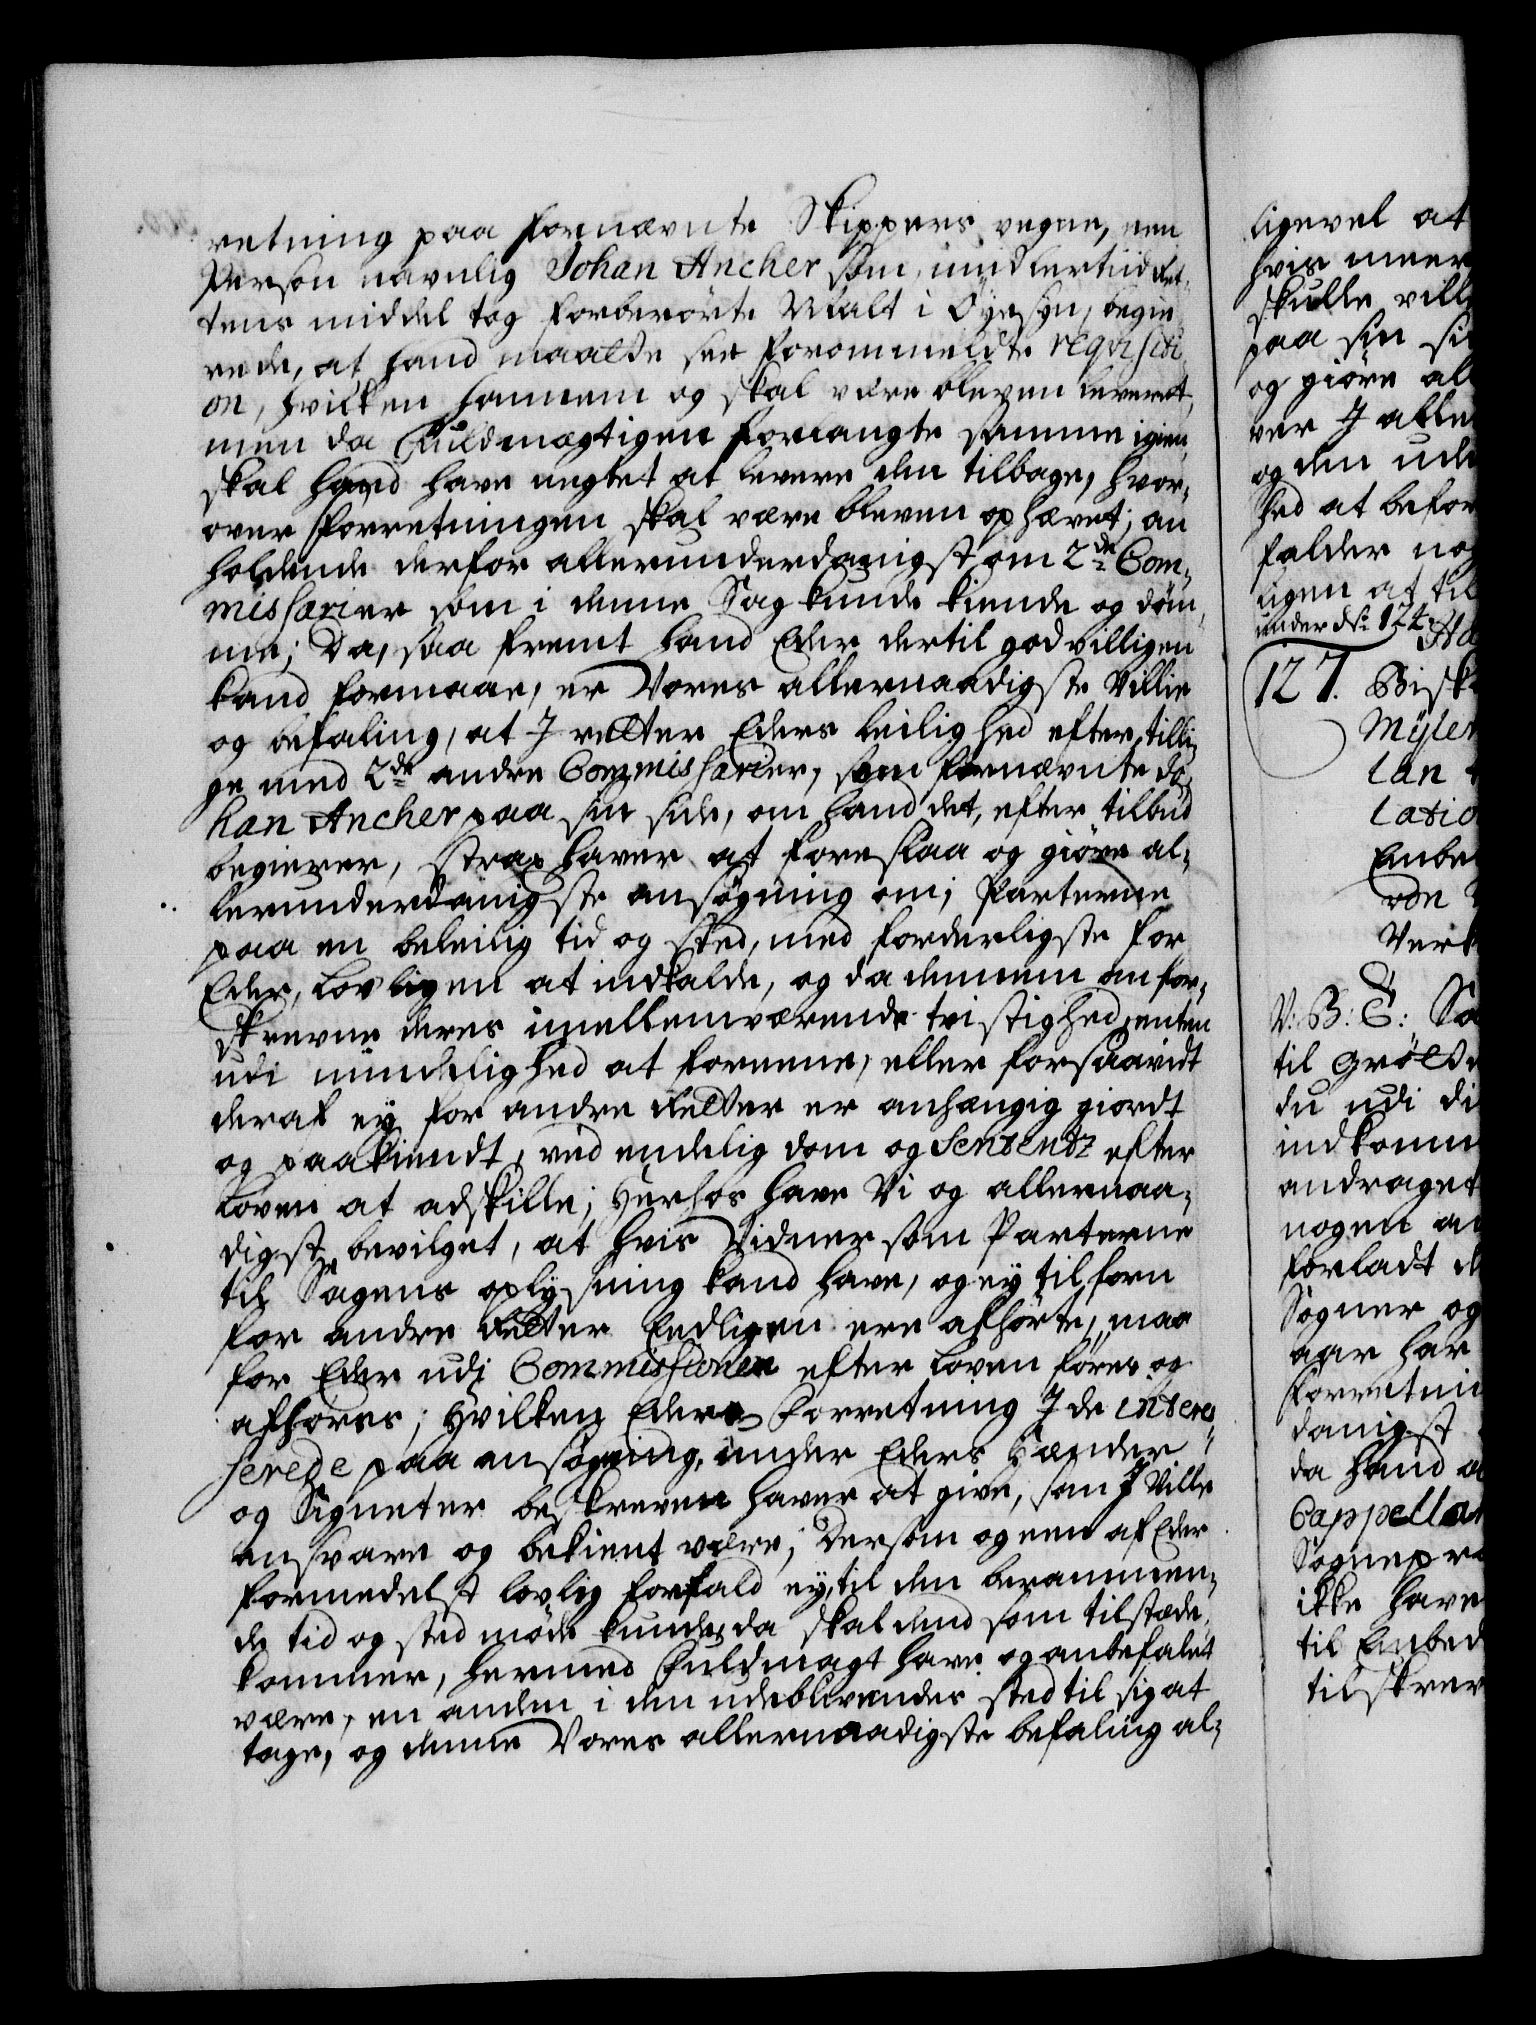 retning paa fornævnte Skippers vegne, een
Person navnlig Johan Ancher som, imidlertiid Ret-
tens middel tog forberørte Malt i Øyesyn, begie-
rede, at hand maatte see forommeldte reqvisiti-
on, hvilken hannem og skal være bleven leveret,
men da Fuldmægtigen forlangte samme igien,
skal hand have negtet at levere den tilbage, hvor-
over forretningen skal være bleven ophævet; an
holdende derfor allerunderdanigst om 2de Com-
missarier som i denne Sag kunde kiende og døm-
me; Da, saa fremt hand Eder dertil godvilligen
kand formaae, er Vores allernaadigste Villie
og befaling, at I retter Eders leilighed efter, tilli-
ge med 2de andre Commissarier, som fornævnte Jo-
han Ancher paa sin side, om hand det, efter tilbud
begierer, strax haver at foreslaa og giøre al-
lerunderdanigste ansøgning om; Parterne
paa en beleilig tid og sted, med forderligste for
Eder, lovligen at indkalde, og da dennem an for-
skrevne deres imellemværende tvistighed, enten
udi mindelighed at foreene, eller forsaavidt
deraf ey for andre Retter er anhængig giordt
og paakiendt, ved endelig dom og Sententz efter
Loven at adskille; Herhos have Vi og allernaa-
digst bevilget, at hvis Vidner som Parterne
til Sagens oplysning kand have, og ey tilforn
for andre Retter Eedligen ere afhørte, maa
for Eder udi Commissionen efter Loven føres og
afhøres; Hvilken Eders Forretning I de interes-
serede paa ansøgning, under Eders Hænder
og Signeter beskreven haver at give, som I Ville
ansvare og bekient være; Dersom og een af Eder
formedelst lovlig forfald ey, til den berammen-
de tid og sted møde kunde, da skal dend som tilstæde
kommer, hermed Fuldmagt have og anbefalet
være, en anden i den udeblivendes sted til sig at
tage, og denne Vores allernaadigste befaling al-
ligevel at
hvis meer
skulle vill
paa sin si
og giøre al
ver I alle
og den ude
hed at befor
falder nog
ligen at til
under ds: 124.
127. Bisk
Mÿler
lan
latio
Enbe
Verk
V: B: G: Sa
til Grøtt
du udi di
indkomm
andraget
nogen an
forladt d
Sogner og
aar har
forretni
danigst
da hand a
Cappellan
Sognepre
ikke have
til Enbed
tilskrev